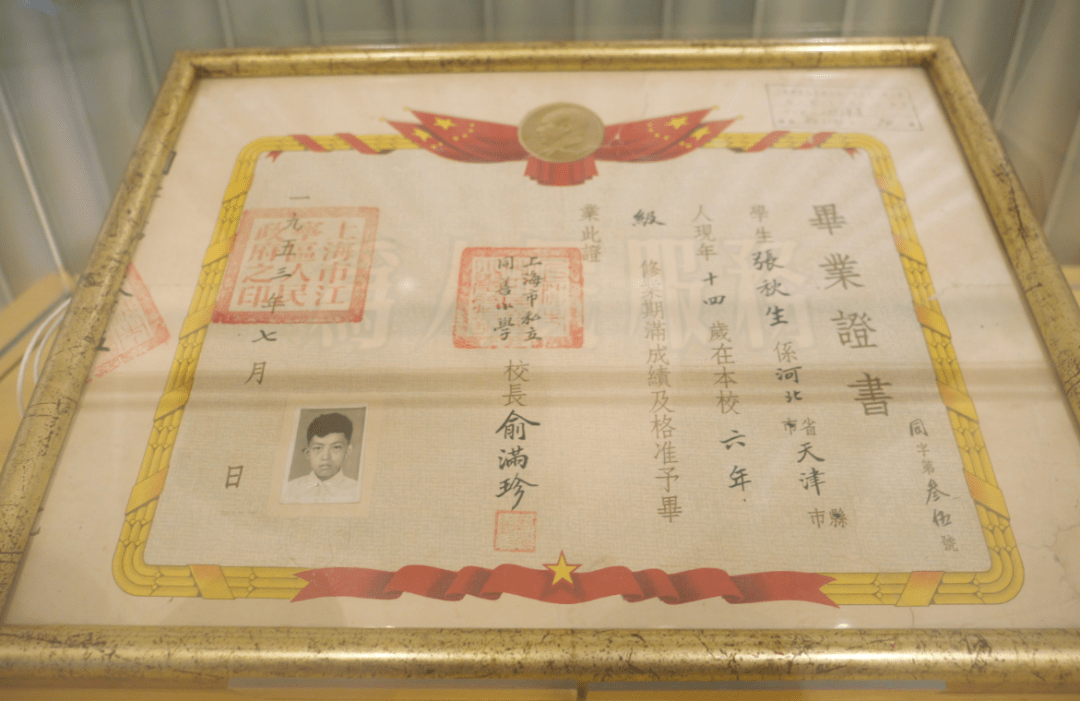 畢業證書
同字第叁伍號
學生張秋生係河北省市天津縣市
人現年十四歲在本校六年
級修業期滿成績及格准予畢
業此證
上海市私立
同善小學
校長俞滿珍
一九五三年七月日
上海市江
寧區人民
政府之印
為人民服務